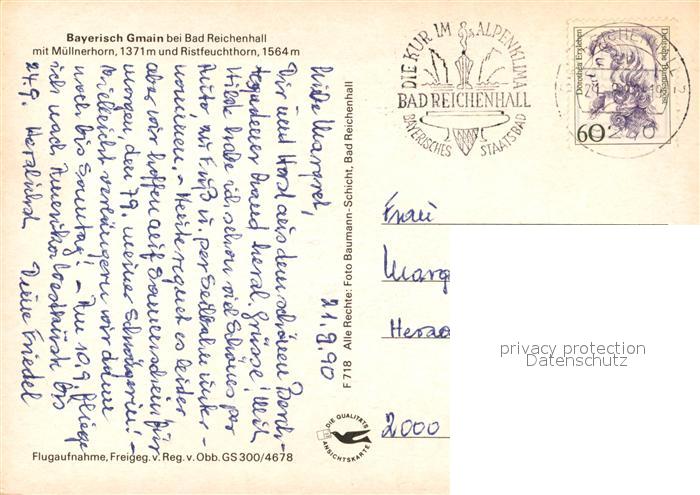 Bayerisch Gmain bei Bad Reichenhall
mit Müllnerhorn, 1371 m und Ristfeuchthorn, 1564 m
21.9.90
Liebe Margret,
Dir und Horst aus dem schönen Berch-
tesgadener Land herzl. Grüsse! Mit
Hilde habe ich schon viel Schönes per
Auto, zu Fuß u. per Seilbahn unter-
nommen. - Heute regnet es leider
aber wir hoffen auf Sonnenschein für
morgen, den 79. meiner Schwägerin! -
Vielleicht verlängern wir dann
noch bis Sonntag! - Am 10.9. fliege
ich nach Amerika bis
24.9. Herzlichst Deine Friedel
Flugaufnahme, Freigeg. v. Reg. v. Obb. GS 300/4678
F 718 Alle Rechte: Foto Baumann-Schicht, Bad Reichenhall
DIE QUALITÄTS
ANSICHTSKARTE
DIE KUR IM ALPENKLIMA
BAD REICHENHALL
BAYERISCHES STAATSBAD
Dorothea Erxleben
Deutsche Bundespost
60
Frau
Marg
2000
privacy protection
Datenschutz